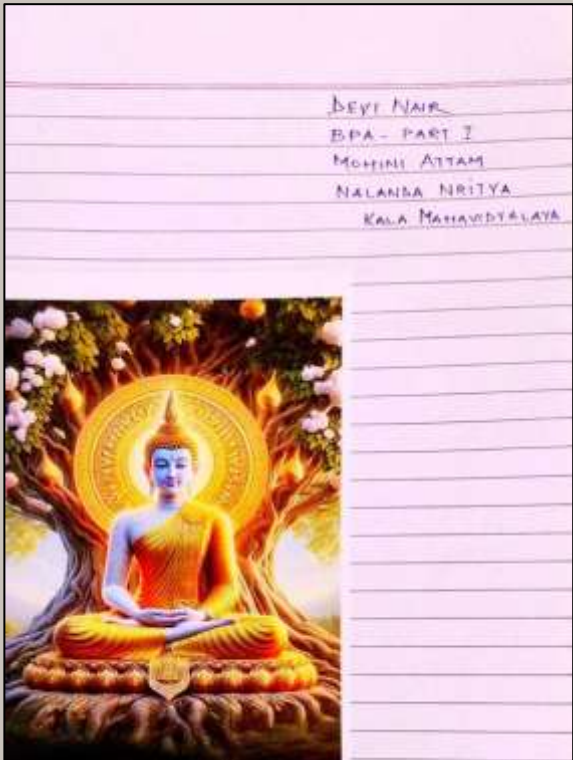 DEVI NAIR
BPA - PART I
MOHINI ATTAM
NALANDA NRITYA
KALA MAHAVIDYALAYA